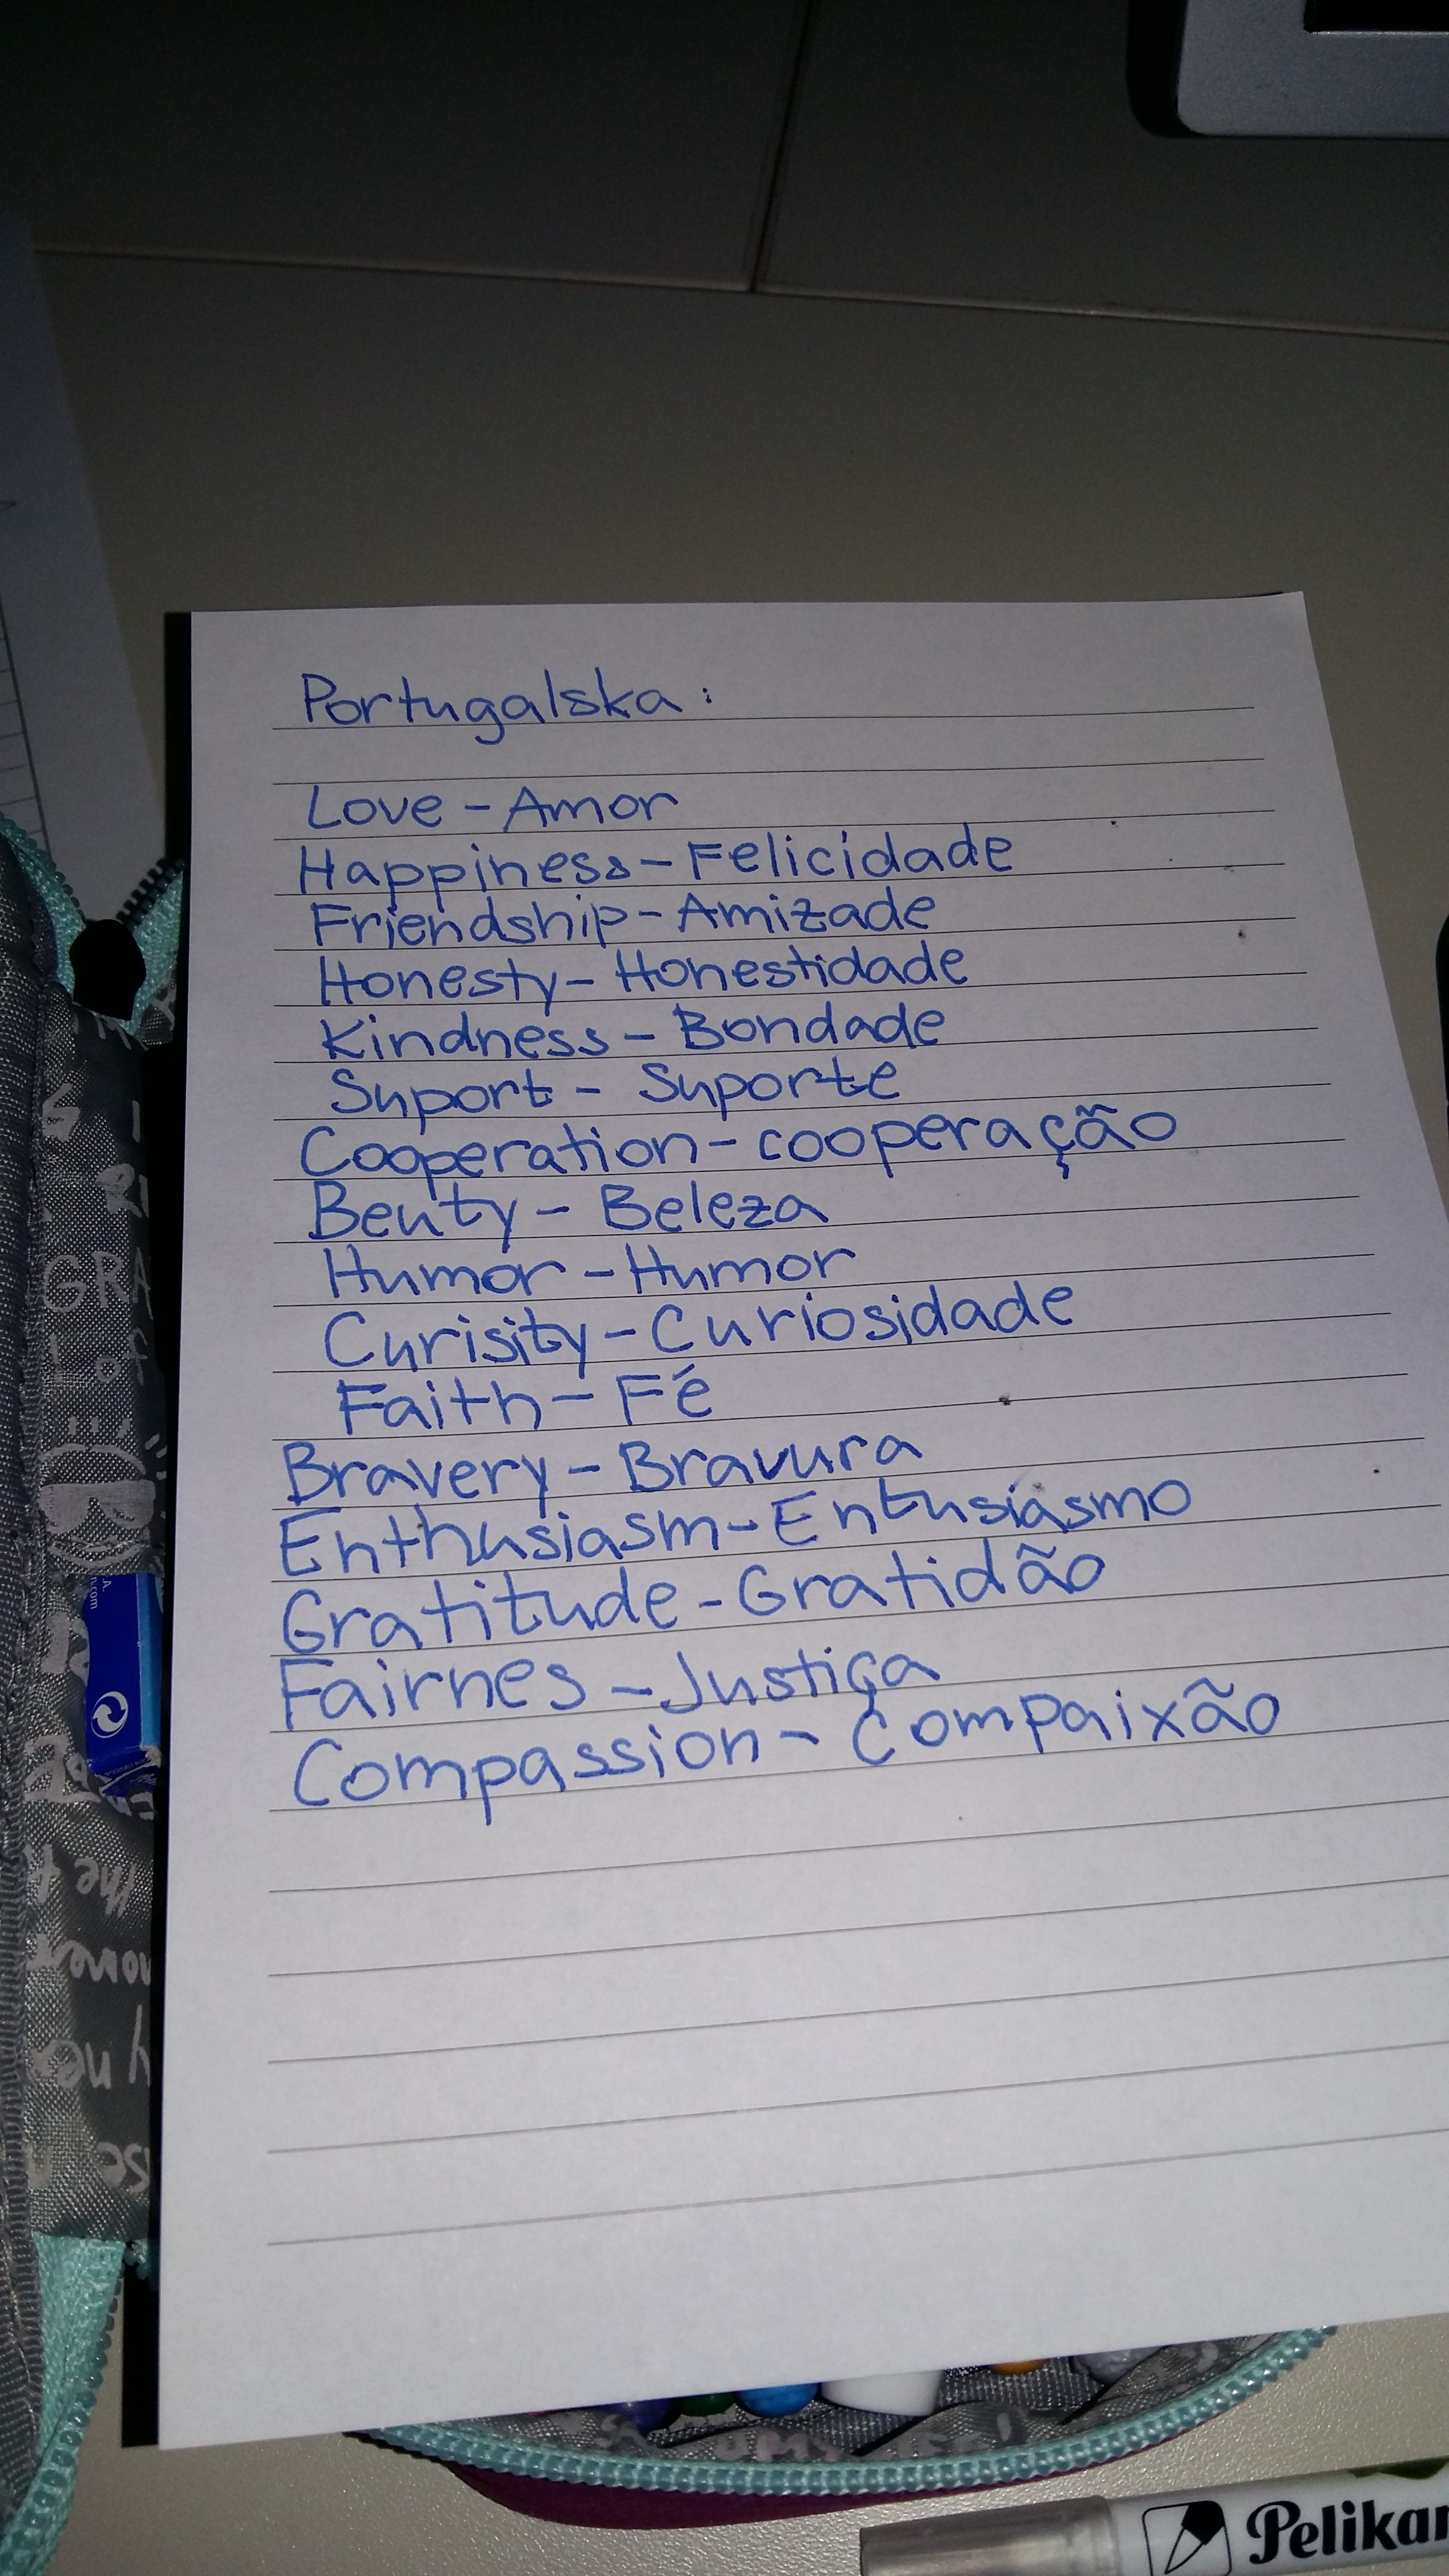 Portugalska:
Love - Amor
Happiness - Felicidade
Friendship - Amizade
Honesty - Honestidade
Kindness - Bondade
Suport - Suporte
Cooperation - cooperação
Beuty - Beleza
Humor - Humor
Curisity - Curiosidade
Faith - Fé
Bravery - Bravura
Enthusiasm - Entusiasmo
Gratitude - Gratidão
Fairnes - Justiça
Compassion - Compaixão
GRA
of
the
Pelikan